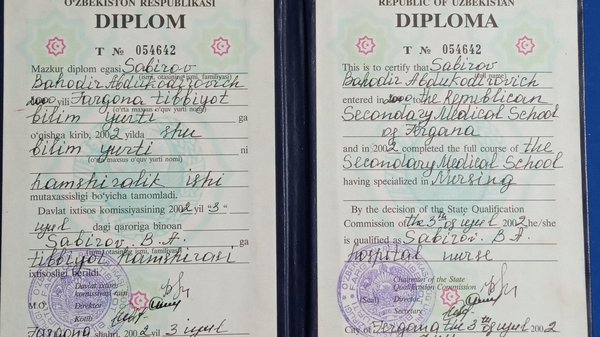 O'ZBEKISTON RESPUBLIKASI
DIPLOM
T № 054642
Mazkur diplom egasi Sabirov
Bahodir Abdukodirovich
(ismi, otasining ismi, familiyasi)
2000 yili Fargona tibbiyot
bilim yurti ga
(o'rta maxsus o'quv yurti nomi)
o'qishga kirib, 2002 yilda shu
bilim yurti ni
(o'rta maxsus o'quv yurti nomi)
hamshiralik ishi
mutaxassisligi bo'yicha tamomladi.
Davlat ixtisos komissiyasining 2002 yil "3"
iyul dagi qaroriga binoan
Sabirov. B.A. ga
(ismi, otasining ismi, familiyasi)
tibbiyot hamshirasi
ixtisosligi berildi.
Davlat ixtisos
komissiyasi raisi
M.O. Direktor
Kotib
Fargona shahri, 2002 yil 3 iyul
REPUBLIC OF UZBEKISTAN
DIPLOMA
T № 054642
This is to certify that Sabirov
Bahodir Abdukodirovich
full name
entered in 2000 to the Republican
Secondary Medical School
of Fergana
and in 2002 completed the full course of the
Secondary Medical School
having specialized in Nursing
By the decision of the State Qualification
Commission of the 3th of iyul 2002 he/she
is qualified as Sabirov. B.A.
hospital nurse
Chairman of the State
Qualification Commission
(Seal) Director
Secretary
City of Fergana the 3th of iyul 2002